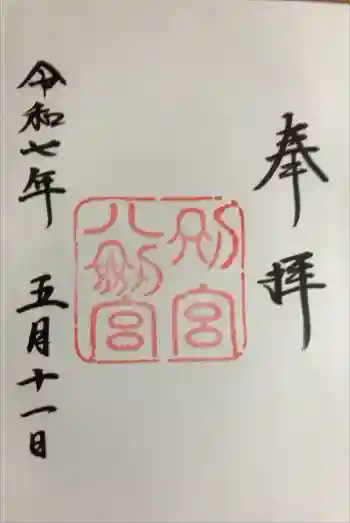 奉拝
別宮
八剣宮
令和七年 五月十一日